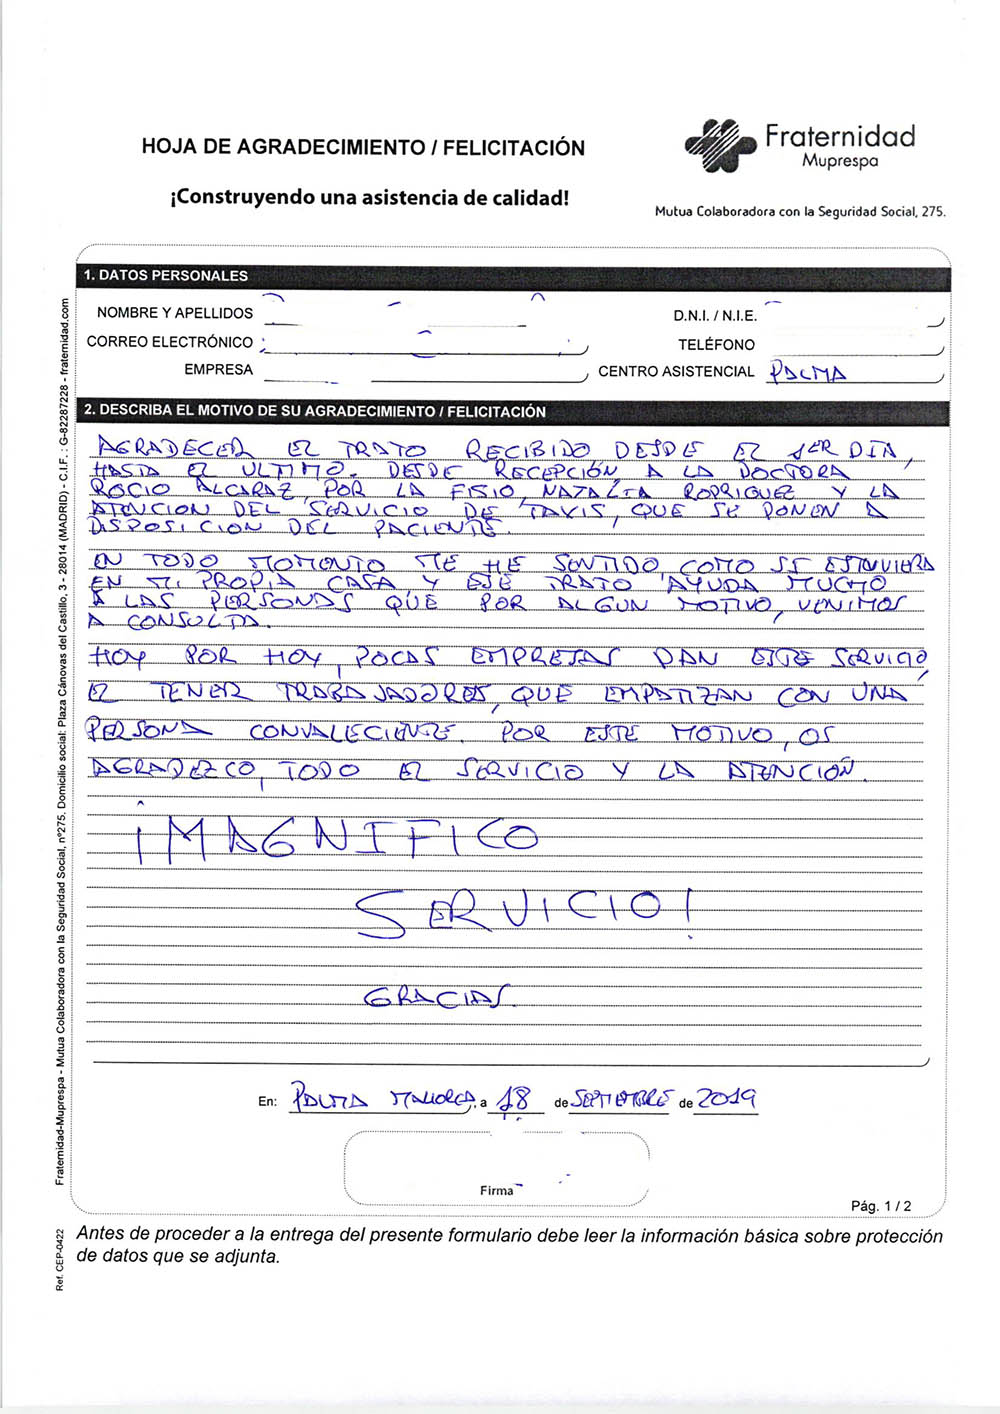 HOJA DE AGRADECIMIENTO / FELICITACIÓN
Fraternidad
Muprespa
¡Construyendo una asistencia de calidad!
Mutua Colaboradora con la Seguridad Social, 275.
1. DATOS PERSONALES
NOMBRE Y APELLIDOS
D.N.I. / N.I.E.
CORREO ELECTRÓNICO
TELÉFONO
EMPRESA
CENTRO ASISTENCIAL PALMA
2. DESCRIBA EL MOTIVO DE SU AGRADECIMIENTO / FELICITACIÓN
AGRADECER EL TRATO RECIBIDO DESDE EL 1ER DÍA,
HASTA EL ULTIMO. DESDE RECEPCIÓN A LA DOCTORA
ROCIO ALCARAZ, POR LA FISIO, NATALIA RODRIGUEZ Y LA
ATENCION DEL SERVICIO DE TAVIS, QUE SE PONEN A
DISPOSICION DEL PACIENTE.
EN TODO MOMENTO ME HE SENTIDO, COMO SI ESTUVIERA
EN MI PROPIA CASA Y ESE TRATO AYUDA MUCHO
A LAS PERSONAS QUE POR ALGUN MOTIVO, VENIMOS
A CONSULTA.
HOY POR HOY, POCAS EMPRESAS DAN ESTE SERVICIO,
EL TENER TRABAJADORES, QUE EMPATIZAN CON UNA
PERSONA CONVALECIENTE. POR ESTE MOTIVO, OS
AGRADEZCO, TODO EL SERVICIO Y LA ATENCIÓN.
¡MAGNIFICO
SERVICIO!
GRACIAS.
En: PALMA MALLORCA, a 18 de SEPTIEMBRE de 2019
Firma
Pág. 1 / 2
Antes de proceder a la entrega del presente formulario debe leer la información básica sobre protección
de datos que se adjunta.
Fraternidad-Muprespa - Mutua Colaboradora con la Seguridad Social, nº275. Domicilio social: Plaza Cánovas del Castillo, 3 - 28014 (MADRID) - C.I.F. : G-82287228 - fraternidad.com
Ref. CEP-0422